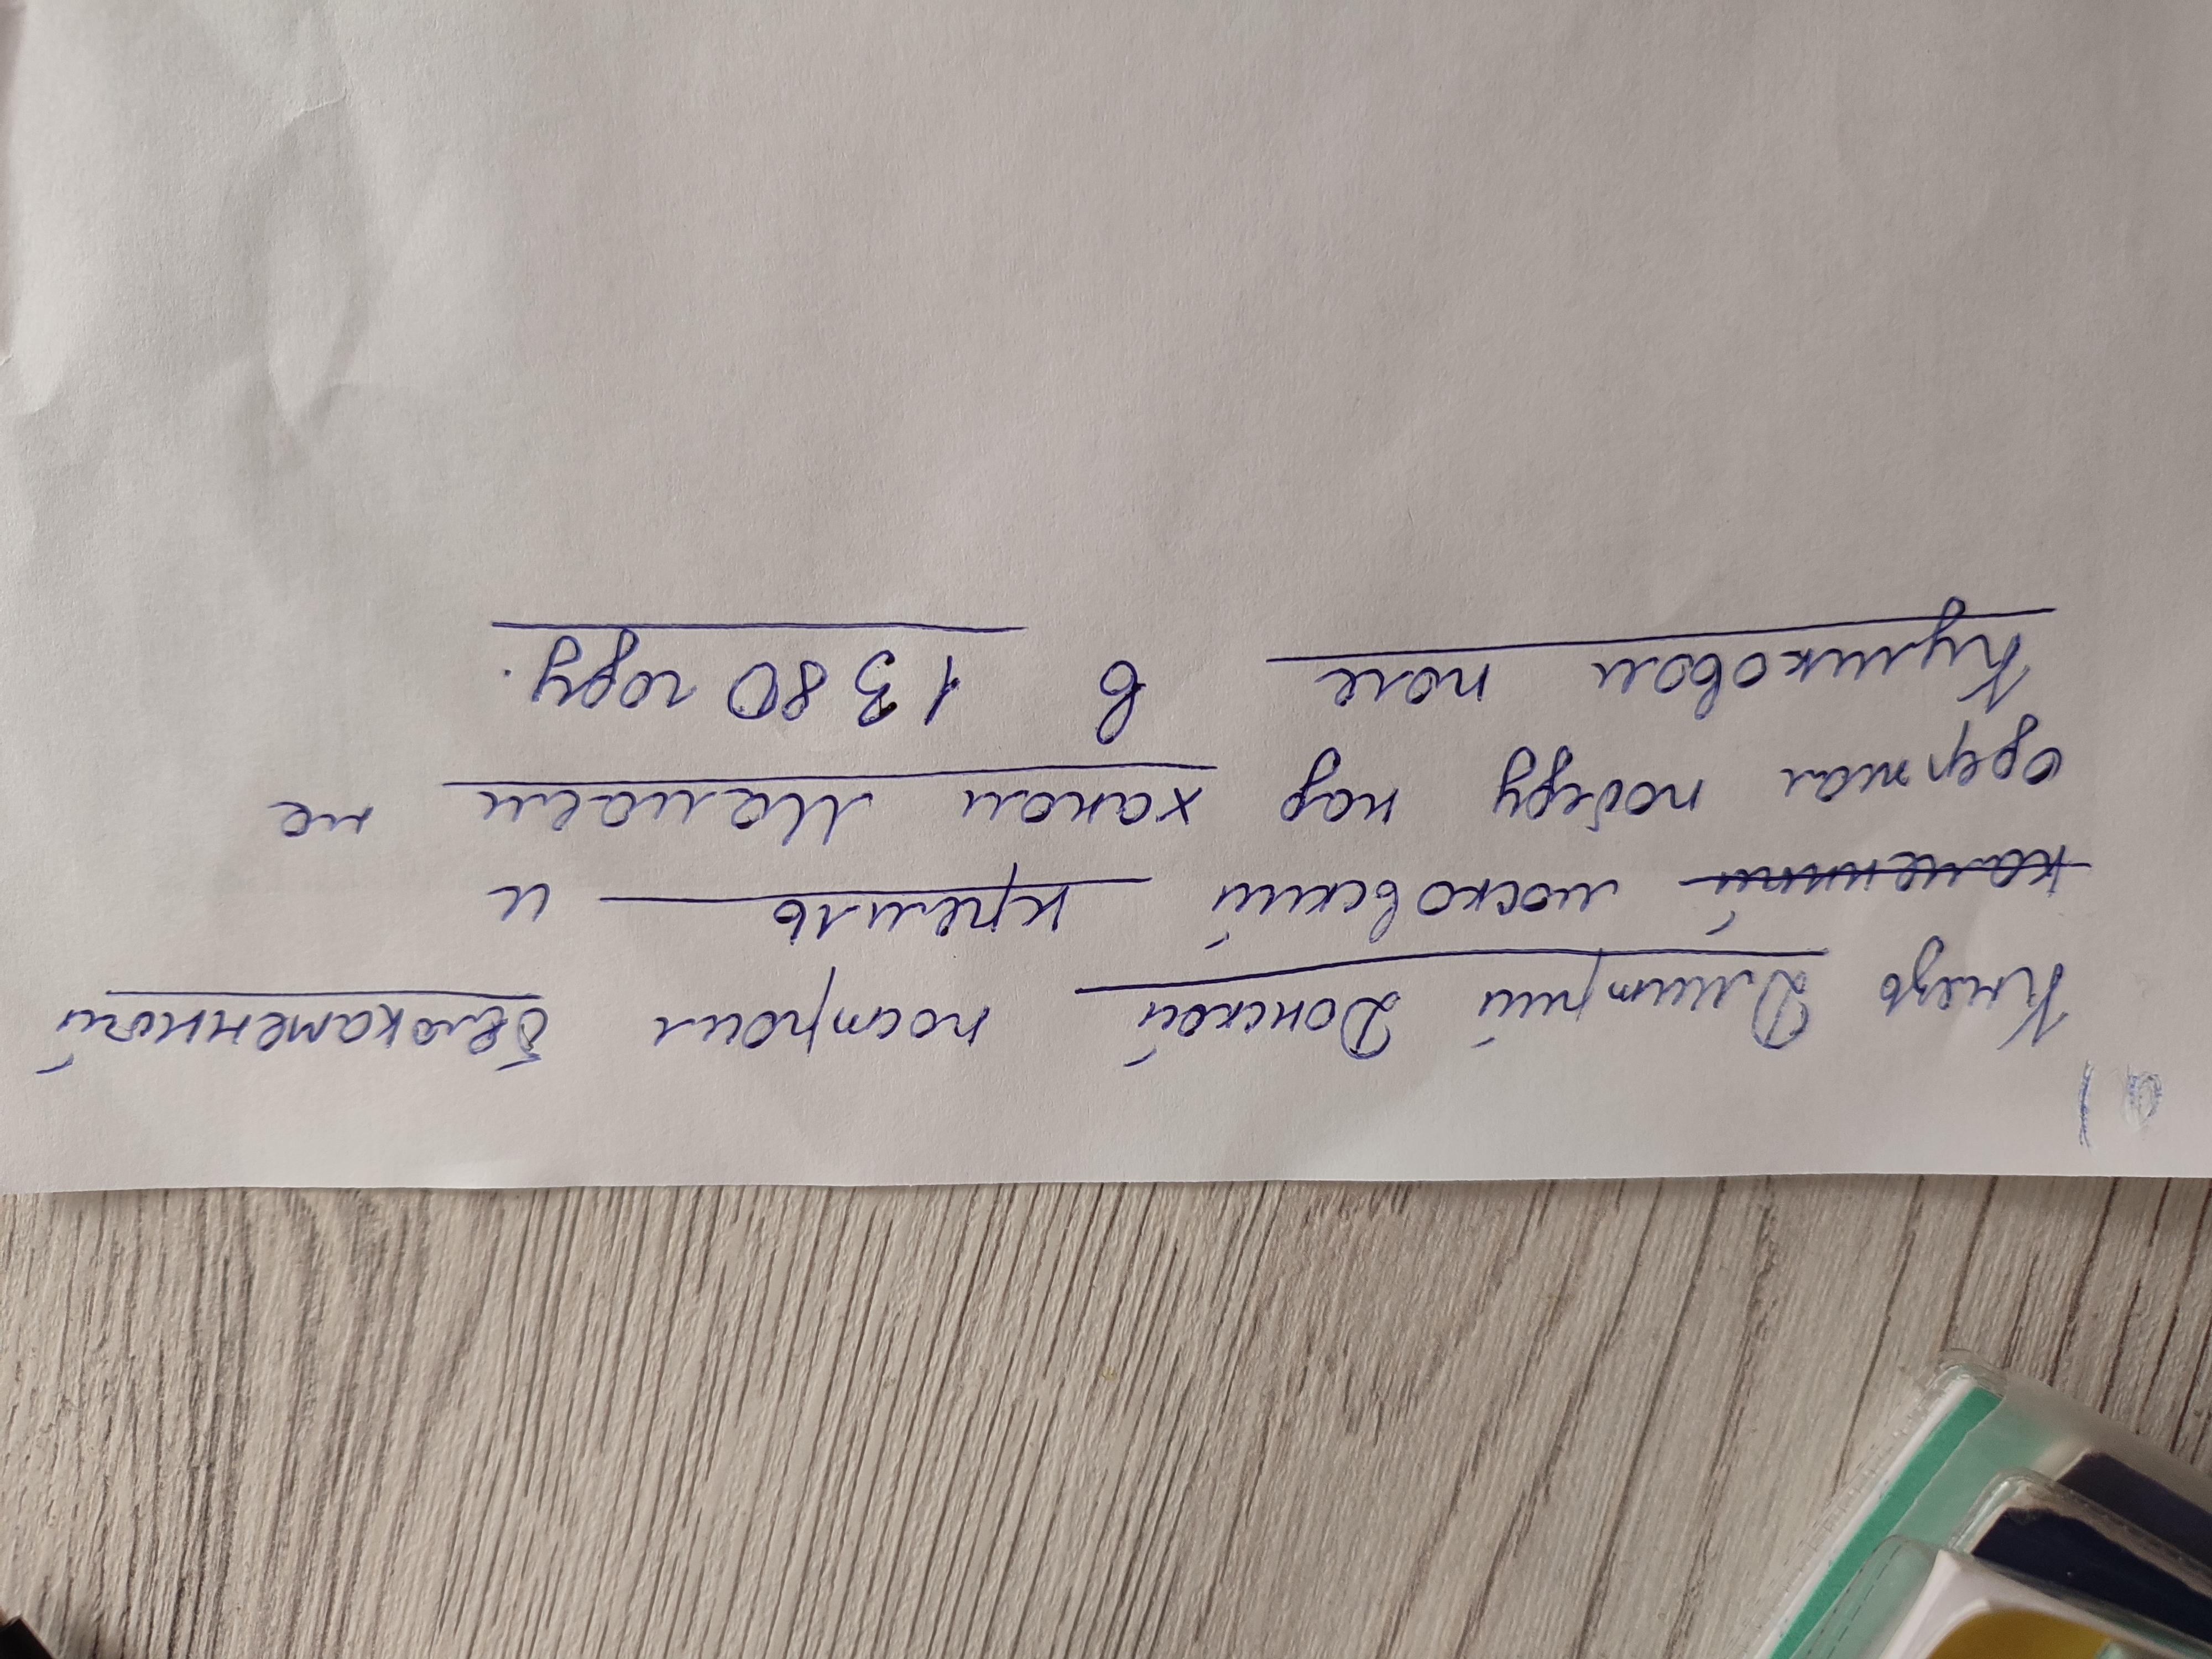 Князь Дмитрий Донской построил белокаменной
каменний московский кремль и
одержал победу над ханом Мамаем на
Куликовом поле в 1380 году.